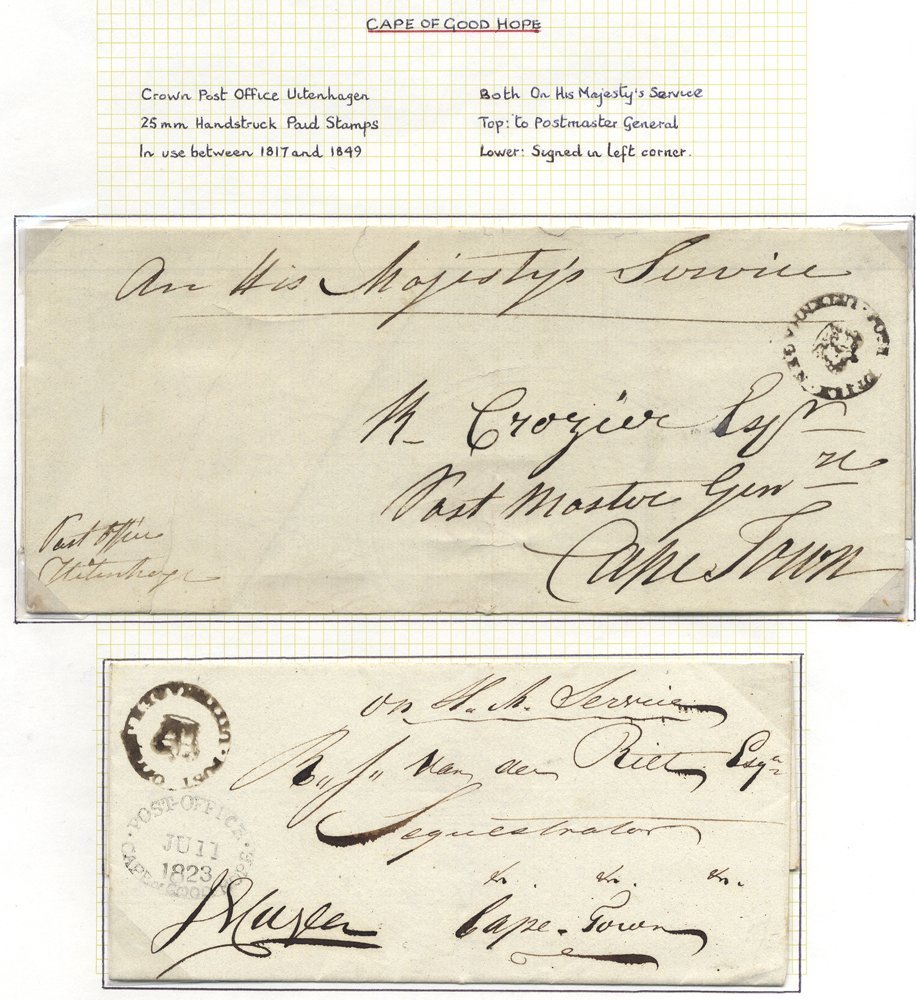 CAPE OF GOOD HOPE
Crown Post Office Uitenhagen
25mm Handstruck Paid Stamps
In use between 1817 and 1849
Both On His Majesty's Service
Top: to Postmaster General
Lower: Signed in left corner.
On His Majesty's Service
R Crozier Esqr
Post Master Genl
Cape Town
Post Office
Uitenhage
on H. M. Service
Van der Riet Esqr
Sequestrator
&c. &c. &c.
Cape-Town
POST-OFFICE
JU 11
1823
CAPE OF GOOD